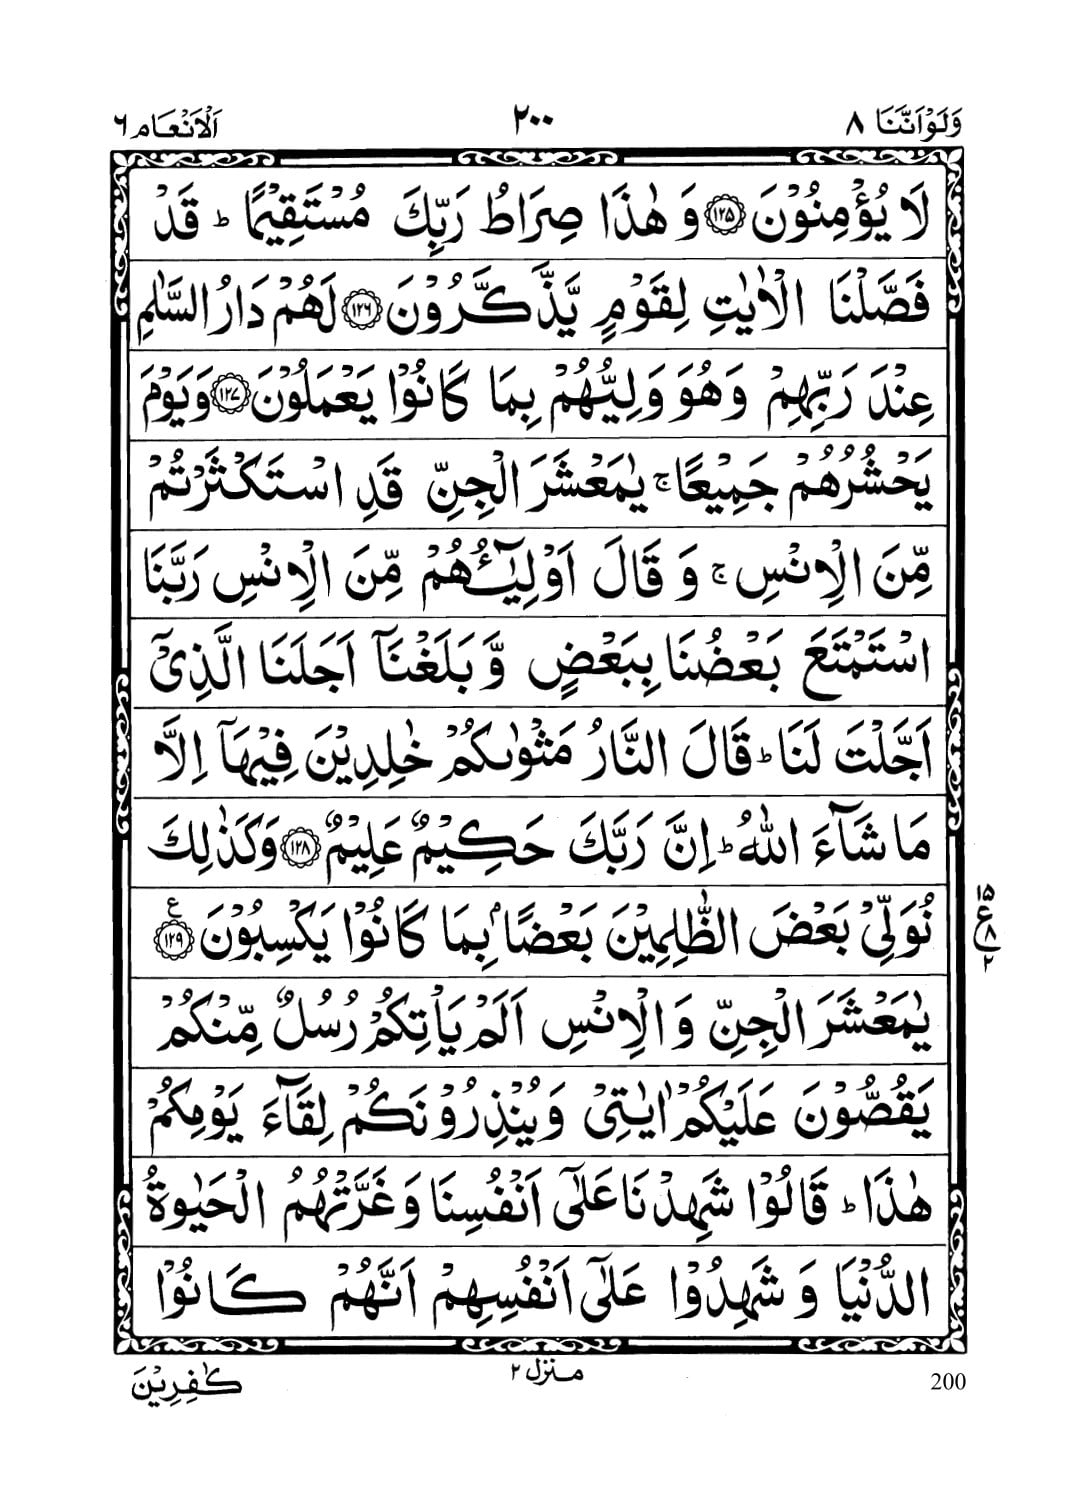 وَلَوْاَنَّنَا ٨
٢٠٠
اَلْاَنْعَام ٦
لَا يُؤْمِنُوْنَ ١٢٥ وَ هٰذَا صِرَاطُ رَبِّكَ مُسْتَقِيْمًا ؕ قَدْ
فَصَّلْنَا الْاٰيٰتِ لِقَوْمٍ يَّذَّكَّرُوْنَ ١٢٦ لَهُمْ دَارُ السَّلٰمِ
عِنْدَ رَبِّهِمْ وَهُوَ وَلِيُّهُمْ بِمَا كَانُوْا يَعْمَلُوْنَ ١٢٧ وَيَوْمَ
يَحْشُرُهُمْ جَمِيْعًا ۚ يٰمَعْشَرَ الْجِنِّ قَدِ اسْتَكْثَرْتُمْ
مِّنَ الْاِنْسِ ۚ وَ قَالَ اَوْلِيٰٓـُٔهُمْ مِّنَ الْاِنْسِ رَبَّنَا
اسْتَمْتَعَ بَعْضُنَا بِبَعْضٍ وَّ بَلَغْنَاۤ اَجَلَنَا الَّذِيْۤ
اَجَّلْتَ لَنَا ؕ قَالَ النَّارُ مَثْوٰىكُمْ خٰلِدِيْنَ فِيْهَاۤ اِلَّا
مَا شَآءَ اللّٰهُ ؕ اِنَّ رَبَّكَ حَكِيْمٌ عَلِيْمٌ ١٢٨ وَكَذٰلِكَ
نُوَلِّيْ بَعْضَ الظّٰلِمِيْنَ بَعْضًۢا بِمَا كَانُوْا يَكْسِبُوْنَ ١٢٩ ع
١٥
ع ٨
٢
يٰمَعْشَرَ الْجِنِّ وَ الْاِنْسِ اَلَمْ يَاْتِكُمْ رُسُلٌ مِّنْكُمْ
يَقُصُّوْنَ عَلَيْكُمْ اٰيٰتِيْ وَيُنْذِرُوْنَكُمْ لِقَآءَ يَوْمِكُمْ
هٰذَا ؕ قَالُوْا شَهِدْنَا عَلٰۤى اَنْفُسِنَا وَغَرَّتْهُمُ الْحَيٰوةُ
الدُّنْيَا وَ شَهِدُوْا عَلٰۤى اَنْفُسِهِمْ اَنَّهُمْ كَانُوْا
كٰفِرِيْنَ
منزل ٢
200